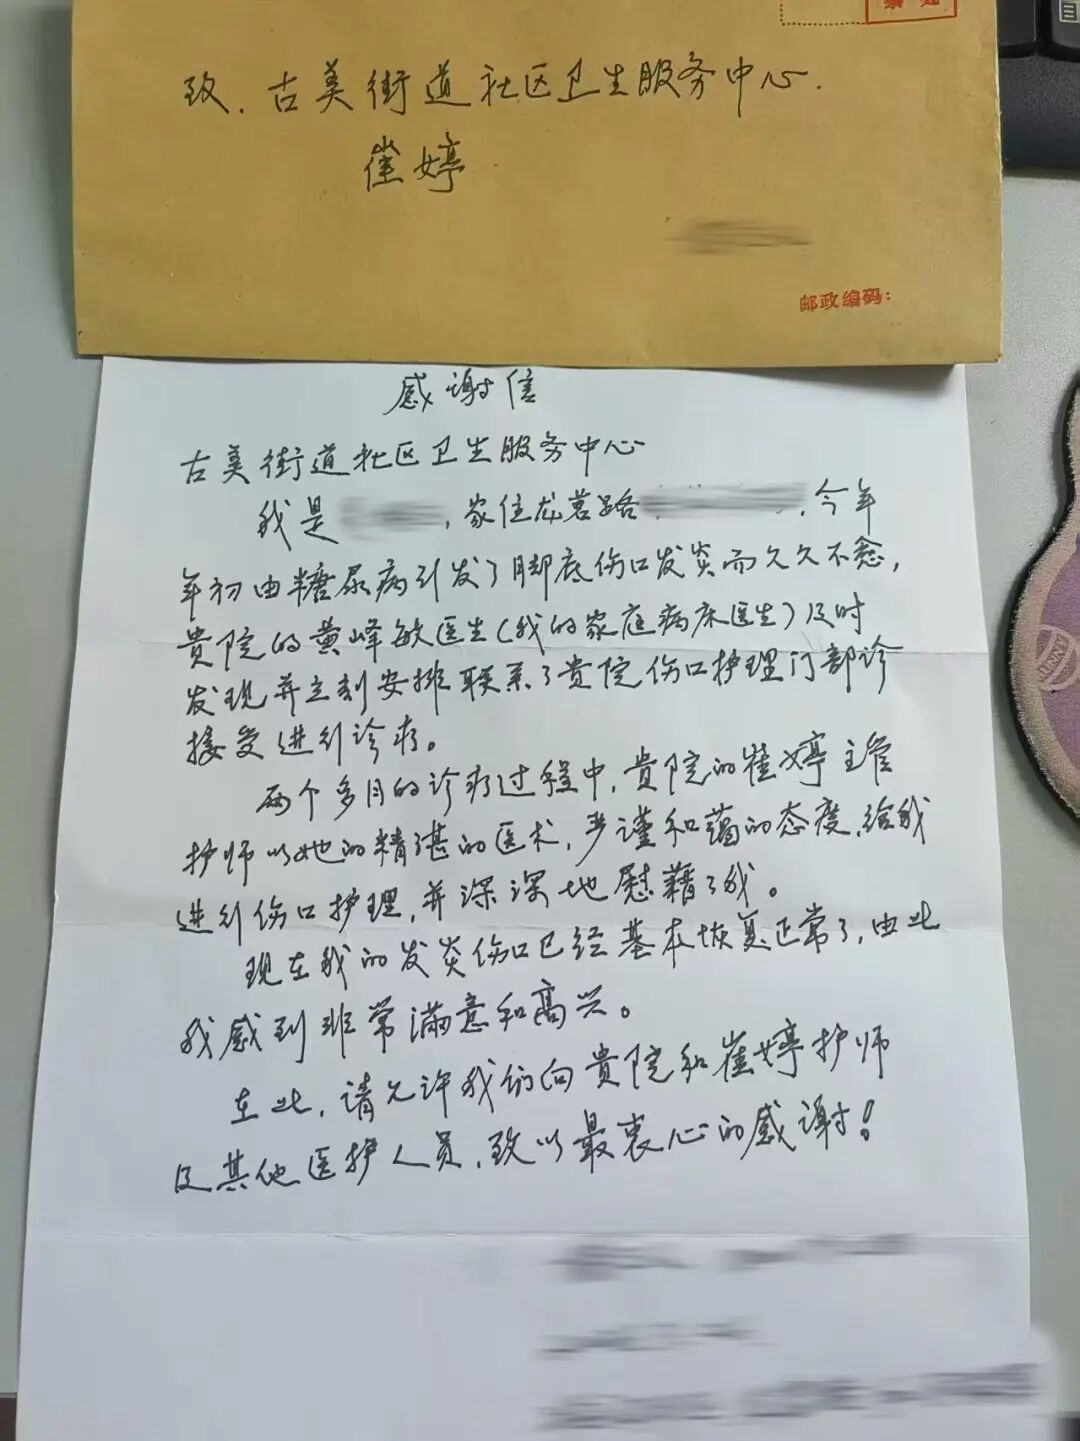 致、古美街道社区卫生服务中心.
崔婷
邮政编码:
感谢信
古美街道社区卫生服务中心
我是,家住龙茗路,今年
年初由糖尿病引发了脚底伤口发炎而久久不愈,
贵院的黄峰敏医生(我的家庭病床医生)及时
发现并立刻安排联系了贵院伤口护理门部诊
接受进行诊疗。
两个多月的诊疗过程中,贵院的崔婷主管
护师以她的精湛的医术,严谨和蔼的态度,给我
进行伤口护理,并深深地慰藉了我。
现在我的发炎伤口已经基本恢复正常了,由此
我感到非常满意和高兴。
在此,请允许我们向贵院和崔婷护师
及其他医护人员,致以最衷心的感谢!